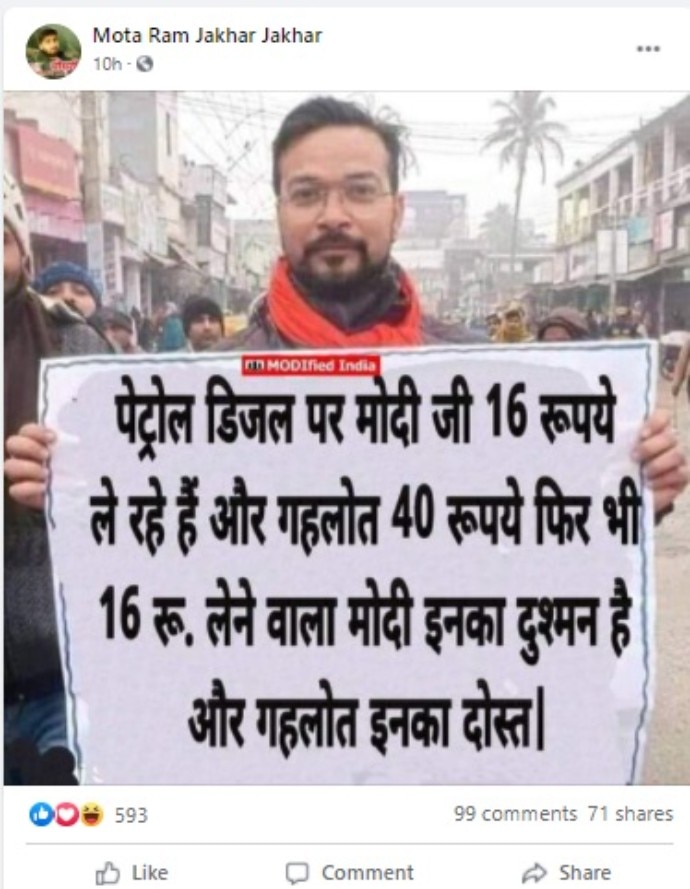 Mota Ram Jakhar Jakhar
10h ·
MODIfied India
पेट्रोल डिजल पर मोदी जी 16 रूपये
ले रहे हैं और गहलोत 40 रूपये फिर भी
16 रू. लेने वाला मोदी इनका दुश्मन है
और गहलोत इनका दोस्त|
593
99 comments 71 shares
Like Comment Share